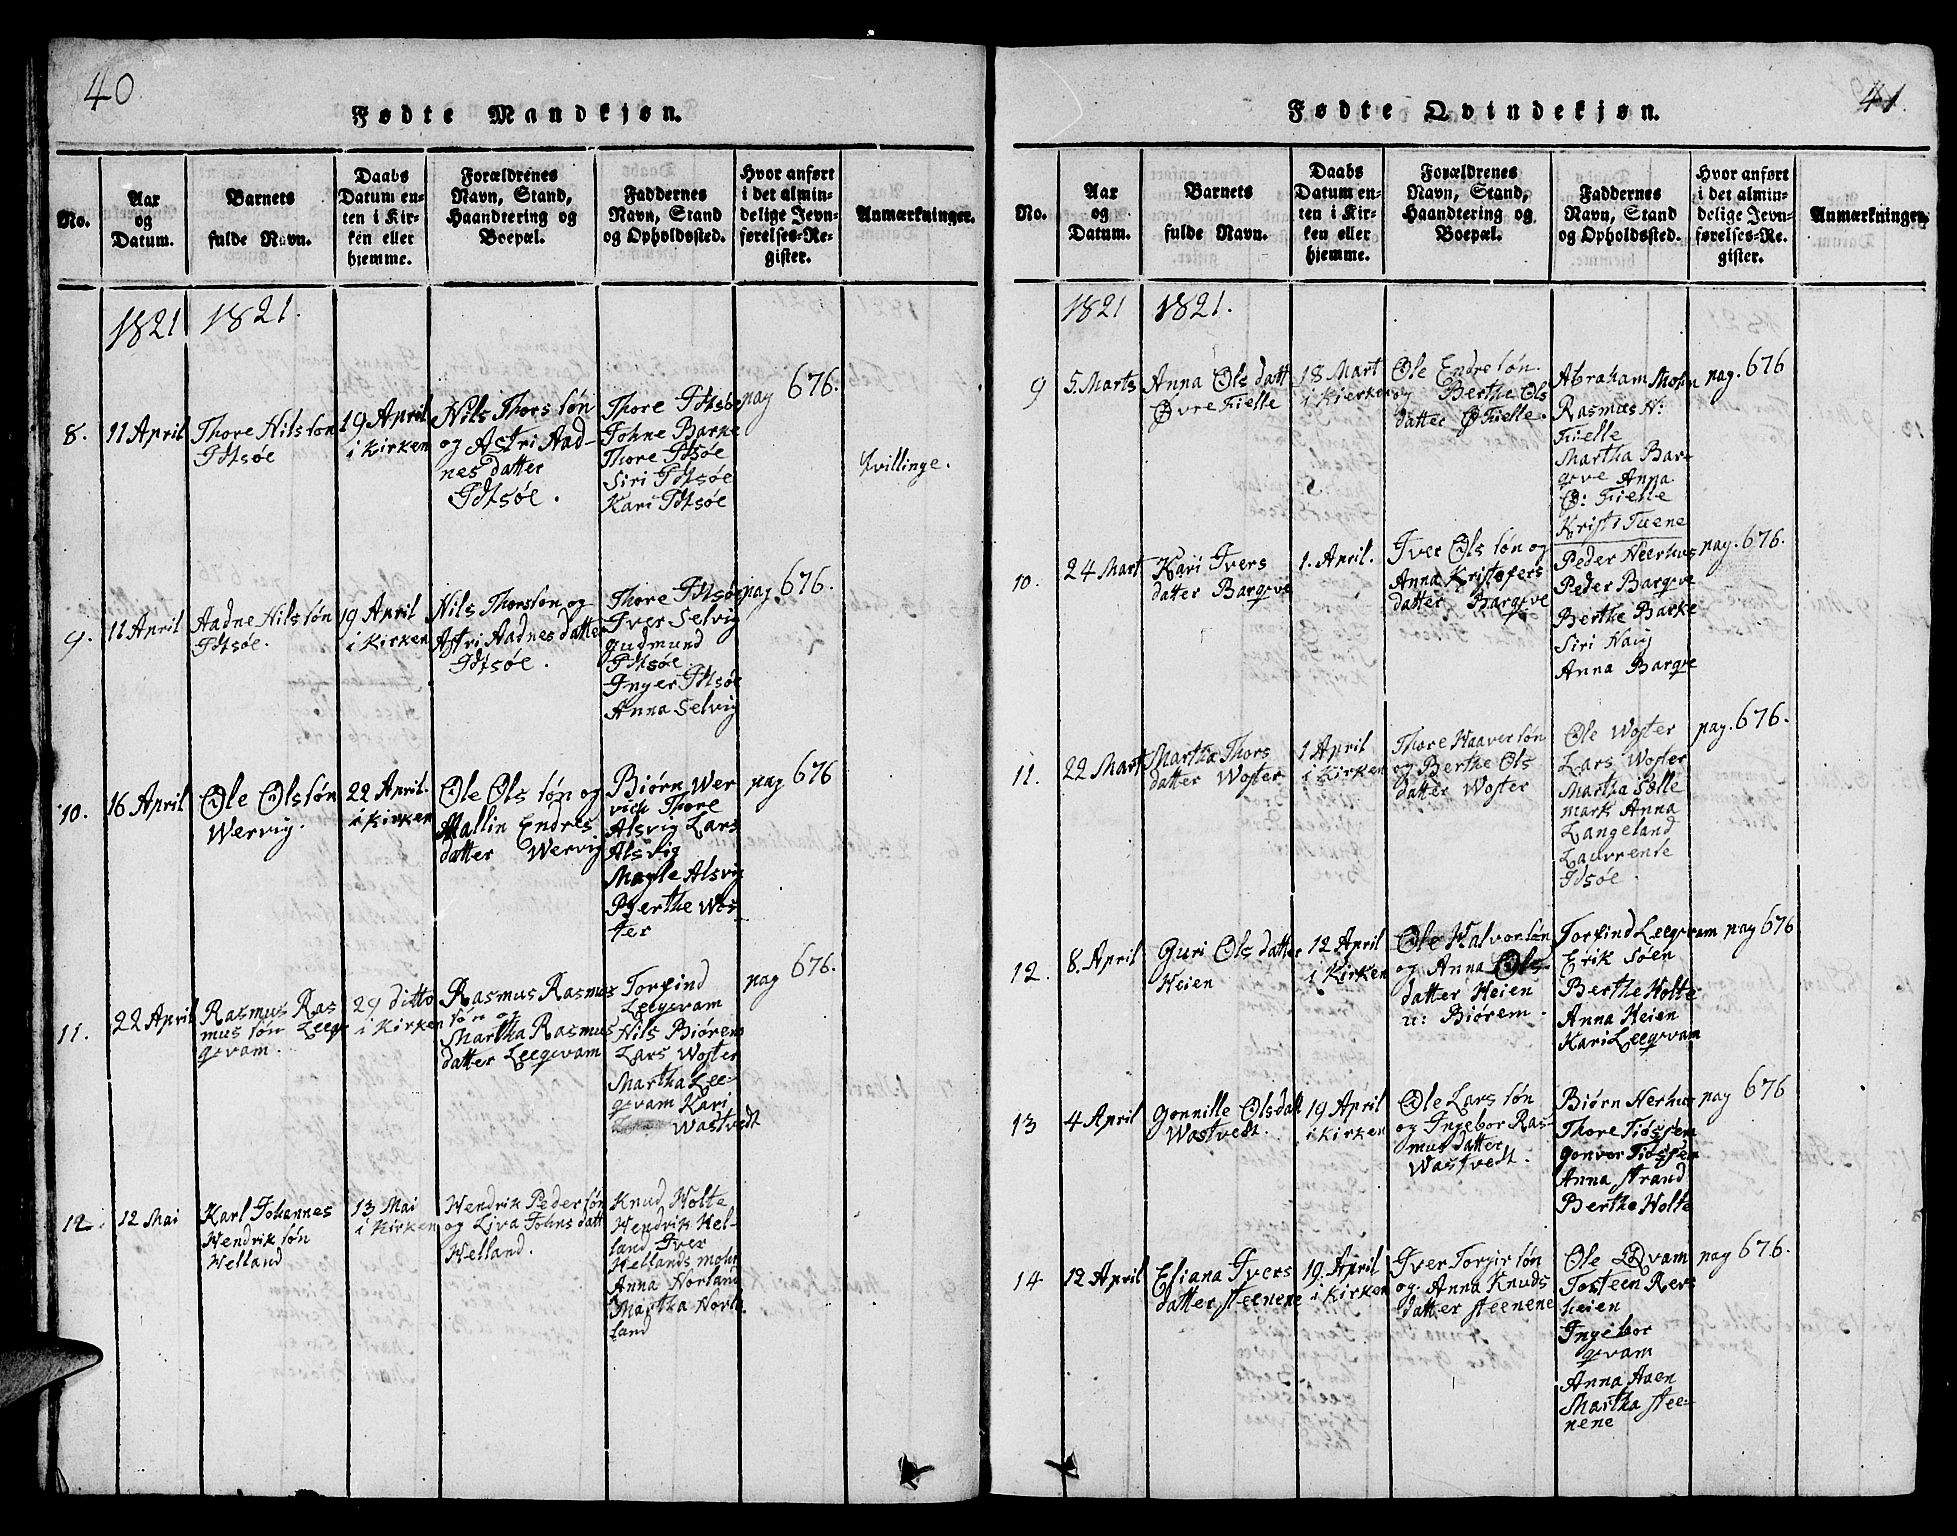 40
Fødte Mandkjøn.
No.
Aar
og
Datum.
Barnets
fulde Navn.
Daabs
Datum en-
ten i Kir-
ken eller
hjemme.
Forældrenes
Navn, Stand,
Haandtering og
Boepæl.
Faddernes
Navn, Stand
og Opholdssted.
Hvor anført
i det almin-
delige Jevn-
førelses-Re-
gister.
Anmærkninger.
1821
1821.
8.
11 April
Thore Nilsløn
Idtsøe
19 April
i Kirken
Nils Thors løn
og Astri Aad-
nes datter
Idtsøe.
Thore Idtsøe
Johne Barke
Thore Idtsøe
Siri Idtsøe
Kari Idtsøe
pag 676.
Tvillinge.
9.
11 April
Aadne Nils løn
Idtsøe.
19 April
i Kirken
Nils Thorsløn og
Astri Aadnes datter
Idtsøe.
Thore Idtsøe
Iver Selvig
Gudmund
Idtsøe
Inger Idtsøe
Anna Selvig
pag. 676.
10.
16 April
Ole Olsløn
Wervig.
22 April.
i Kirken
Ole Ols løn og
Mallin Endres
datter Wervig
Biørn Wer
vich Thore
Alsvig Lars
Alsvig
Magle Alsvig
Berthe Wos-
ter
pag 676
11.
22 April
Rasmus Ras
mus løn Leeg
qvam.
29 ditto
i Kirken
Rasmus Rasmus
løn og
Martha Rasmus
datter Leeqvam
Torfind
Leegvam
Nils Biørem
Lars Woster
Martha Lee-
qvam Kari
Wastvedt
pag 676.
12.
12 Mai
Karl Johannes
Hendrik løn
Helland
13 Mai
i Kirken
Hendrik Peder løn
og Liva Johns datt
Helland.
Knud Holte
Hendrik Hel-
land Iver
Hellands mohn
Anna Norland
Martha Nord
land
41.
Fødte Qvindekjøn.
No.
Aar
og
Datum.
Barnets
fulde Navn.
Daabs
Datum en-
ten i Kir-
ken eller
hjemme.
Forældrenes
Navn, Stand,
Haandtering og
Boepæl.
Faddernes
Navn, Stand
og Opholdssted.
Hvor anført
i det almin-
delige Jevn-
førelses-Re-
gister.
Anmærkninger.
1821
1821.
9
5. Marts
Anna Ols datt
Øvre Fielle
18 Mart
i Kierken
Ole Endre løn.
og Berthe Ols
datter Ø Fielle.
Abraham Mohn
Rasmus N:
Fielle
Martha Bar-
qve Anna
Ø: Fielle
Kristi Tuene
pag. 676
10.
24 Mart
Kari Ivers
datter Barqve
1. April.
Iver Ols løn og
Anna Kristofers
datter Barqve
Peder Neerhus
Peder Barqve
Berthe Barke
Siri Haug
Anna Barqve
pag. 676.
11.
22 Mart
Martha Thors
datter Woster
1 April
i Kirken
Thore Haaver løn
og Berthe Ols
datter Woster
Ole Woster
Lars Woster
Martha Sælle
mark Anna
Langeland
Lauvrente
Idsøe.
pag. 676.
12.
8. April
Guri Ols datter
Heien
12 April
i Kirken
Ole Halvorløn
og Anna Ols-
datter Heien
u: Biørem.
Torfind Leeqvam
Erik Søen
Berthe Holte
Anna Heien
Kari Leeqvam
pag 676
13
4 April
Gonnille Olsdatt
Wastvedt.
19 April
i Kirken
Ole Lars løn
og Ingebor Ras-
mus datter
Wastvedt.
Biørn Nerhus
Thore Tiøssem
Gonvor Tiøssem
Anna Strand
Berthe Holte
pag 676
14
12 April
Eliana Ivers
datter Steenene
19. April
i Kirken
Iver Torgir løn
og Anna Knuds
datter Steenene
Ole Qvam
Tosteen Revs
heien
Ingebor
qvam
Anna Aaen
Martha Stee-
nene
pag 676.